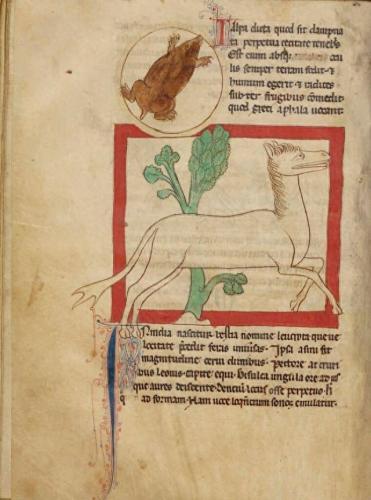 Talpa dicta quod sit dampna
ta perpetua cecitate tenebris
Est enim absq; ocu
lis semper terram fodit &
humum egerit & radices
subter frugibus comedit
quod greci aphala uocant
In india nascitur bestia nomine leucrota que ue
locitate precedit feras uniuersas. Ipsi asini fit
magnitudine cerui clunibus. Pectore ac cruri
bus leonis. capite equi. bisulca ungula ore ad us
que aures dehiscente. dentium locus osse perpetuo. h
q ad formam. Nam uoce loquentium sonos emulatur.